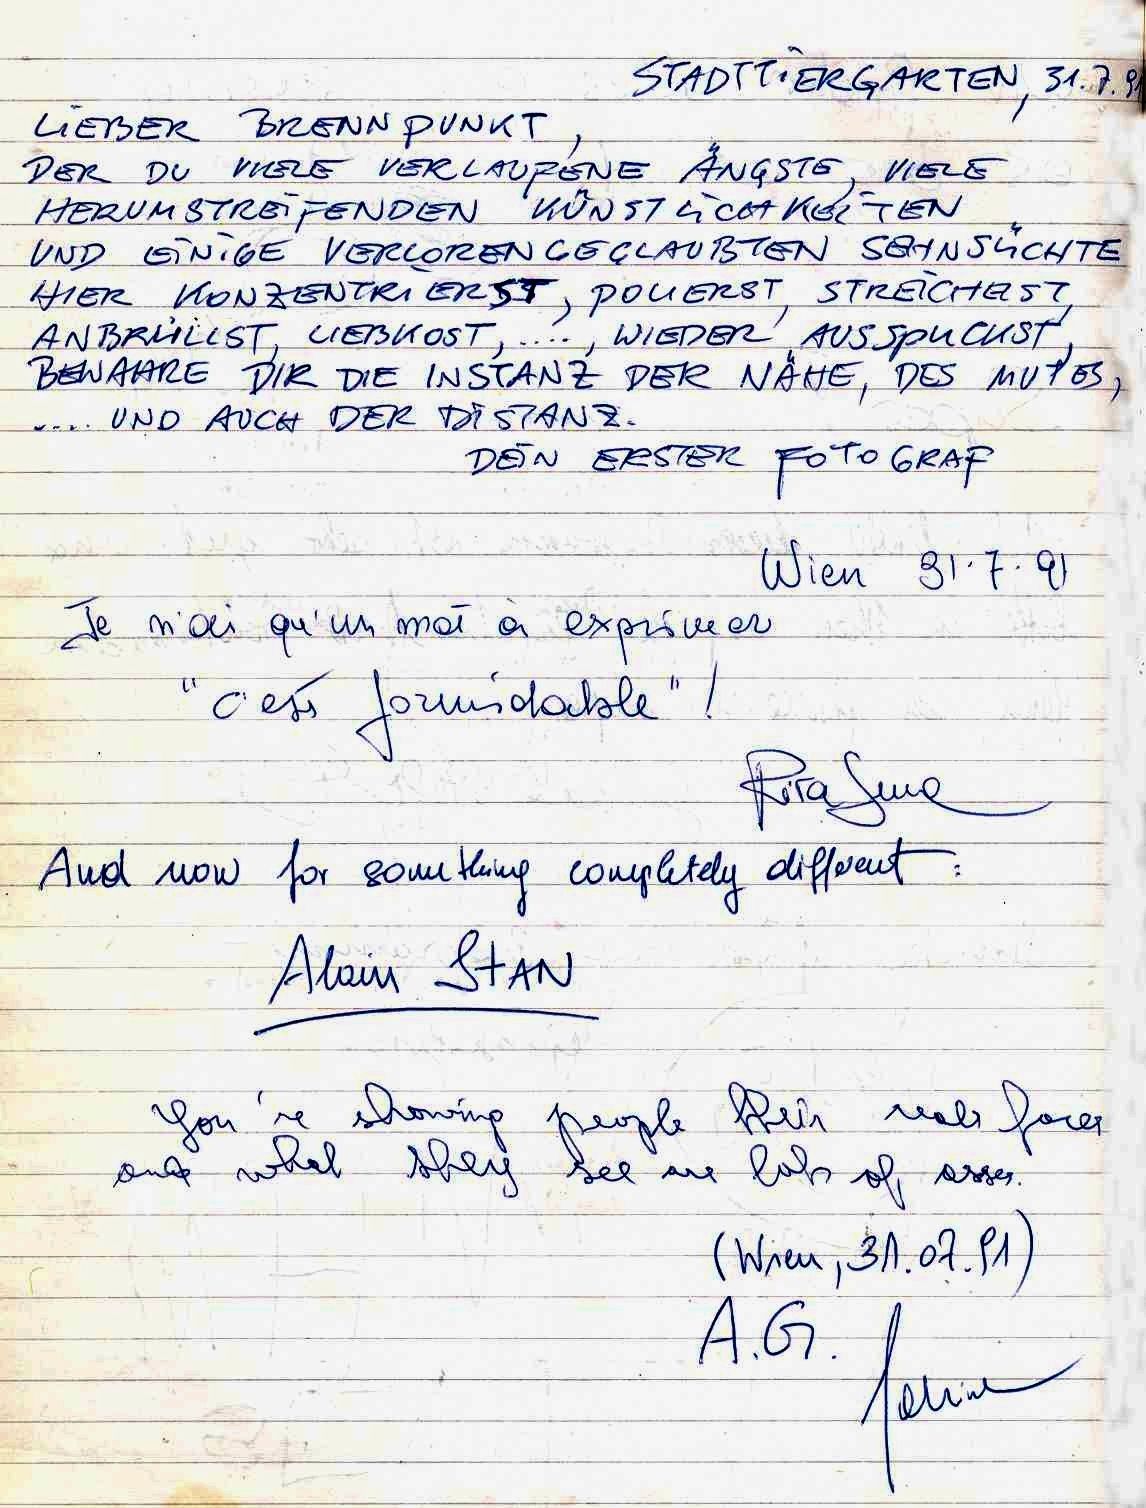 STADTTIERGARTEN, 31.7.91
LIEBER BRENNPUNKT,
DER DU VIELE VERLAUFENE ÄNGSTE, VIELE
HERUMSTREIFENDEN KÜNSTLICHKEITEN
UND EINIGE VERLORENGEGLAUBTEN SEHNSÜCHTE
HIER KONZENTRIERST, POLIERST, STREICHELST,
ANBRÜLLST, LIEBKOST, ...., WIEDER AUSSPUCKST,
BEWAHRE DIR DIE INSTANZ DER NÄHE, DES MUTES,
.... UND AUCH DER DISTANZ.
DEIN ERSTER FOTOGRAF
Wien 31.7.91
Je n'ai qu'un mot à exprimer
"c'est formidable"!
Rita
And now for something completely different:
Alain STAN
You're showing people their real faces
and what they see are lots of asses.
(Wien, 31.07.91)
A.G.